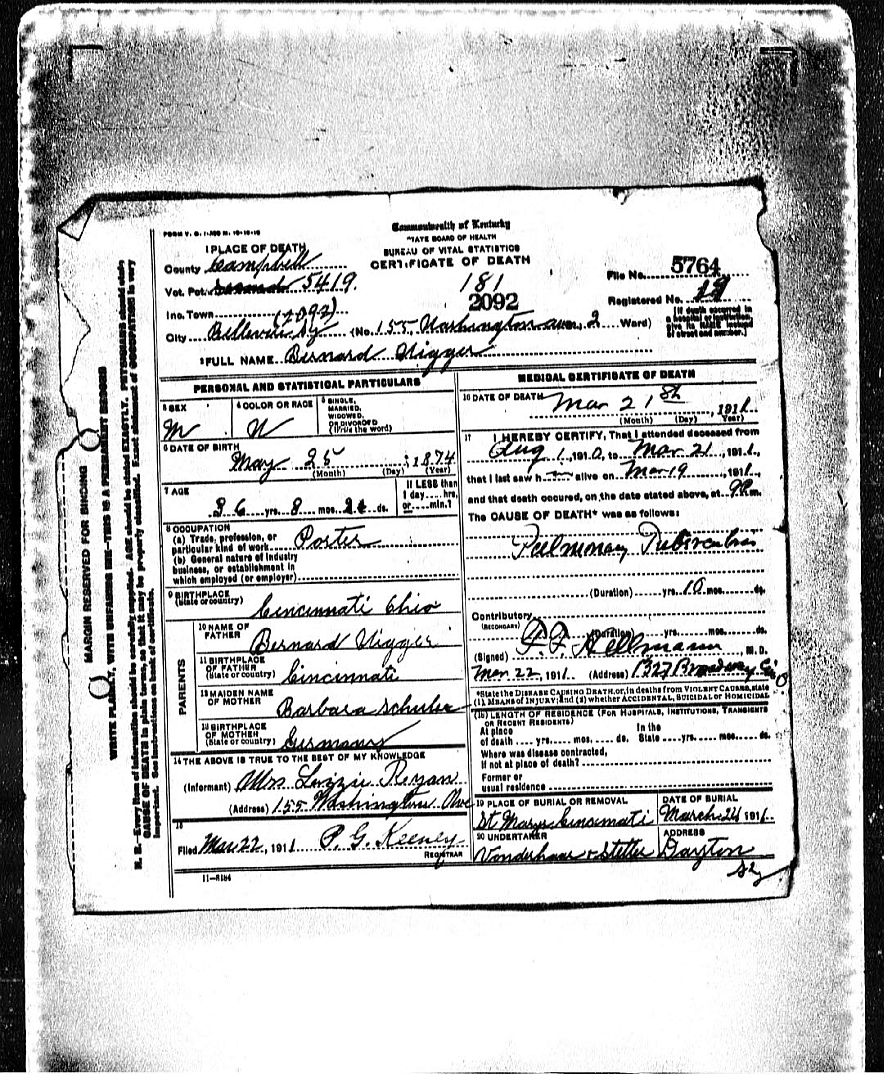 FORM V. S. 1
Commonwealth of Kentucky
STATE BOARD OF HEALTH
BUREAU OF VITAL STATISTICS
CERTIFICATE OF DEATH
1 PLACE OF DEATH
County Campbell
Vot. Pct. 5419
Inc. Town (2092)
City Bellevue Ky (No. 155 Washington ave., 2 Ward)
181
2092
File No. 5764
Registered No. 19
[If death occurred in a hospital or institution, give its NAME instead of street and number.]
2 FULL NAME Bernard
PERSONAL AND STATISTICAL PARTICULARS
3 SEX M
4 COLOR OR RACE W
5 SINGLE, MARRIED, WIDOWED, OR DIVORCED (Write the word)
6 DATE OF BIRTH
May 25, 1874
(Month) (Day) (Year)
7 AGE
36 yrs. 8 mos. ds.
If LESS than 1 day.....hrs. or.....min.?
8 OCCUPATION
(a) Trade, profession, or particular kind of work Porter
(b) General nature of industry business, or establishment in which employed (or employer)
9 BIRTHPLACE (State or country) Cincinnati Ohio
PARENTS
10 NAME OF FATHER Bernard
11 BIRTHPLACE OF FATHER (State or country) Cincinnati
12 MAIDEN NAME OF MOTHER Barbara Schuler
13 BIRTHPLACE OF MOTHER (State or country) Germany
14 THE ABOVE IS TRUE TO THE BEST OF MY KNOWLEDGE
(Informant) Mrs Lizzie Ryan
(Address) 155 Washington Ave
15
Filed Mar 22, 1911 P. G. Keeney
REGISTRAR
11-5184
MEDICAL CERTIFICATE OF DEATH
16 DATE OF DEATH Mar 21st, 1911
(Month) (Day) (Year)
17 I HEREBY CERTIFY, That I attended deceased from
Aug 1, 1910, to Mar 21, 1911,
that I last saw h im alive on Mar 19, 1911,
and that death occured, on the date stated above, at 9 P.m.
The CAUSE OF DEATH* was as follows:
Pulmonary Tuberculosis
(Duration) yrs. 10 mos. ds.
Contributory
(SECONDARY)
(Duration) yrs. mos. ds.
(Signed) F. F. Hellmann, M. D.
Mar 22, 1911. (Address) 1327 Broadway
*State the DISEASE CAUSING DEATH, or, in deaths from VIOLENT CAUSES, state (1) MEANS of INJURY; and (2) whether ACCIDENTAL, SUICIDAL or HOMICIDAL
18 LENGTH OF RESIDENCE (FOR HOSPITALS, INSTITUTIONS, TRANSIENTS OR RECENT RESIDENTS)
At place of death.....yrs.....mos.....ds. In the State.....yrs.....mos.....ds.
Where was disease contracted, if not at place of death?
Former or usual residence
19 PLACE OF BURIAL OR REMOVAL St Marys Cincinnati
DATE OF BURIAL March 24 1911
20 UNDERTAKER Vonderhaar & Stetter
ADDRESS Dayton Ky
MARGIN RESERVED FOR BINDING
WRITE PLAINLY, WITH UNFADING INK—THIS IS A PERMANENT RECORD
N. B.—Every item of information should be carefully supplied. AGE should be stated EXACTLY. PHYSICIANS should state CAUSE OF DEATH in plain terms, so that it may be properly classified. Exact statement of OCCUPATION is very important. See instructions on back of certificate.